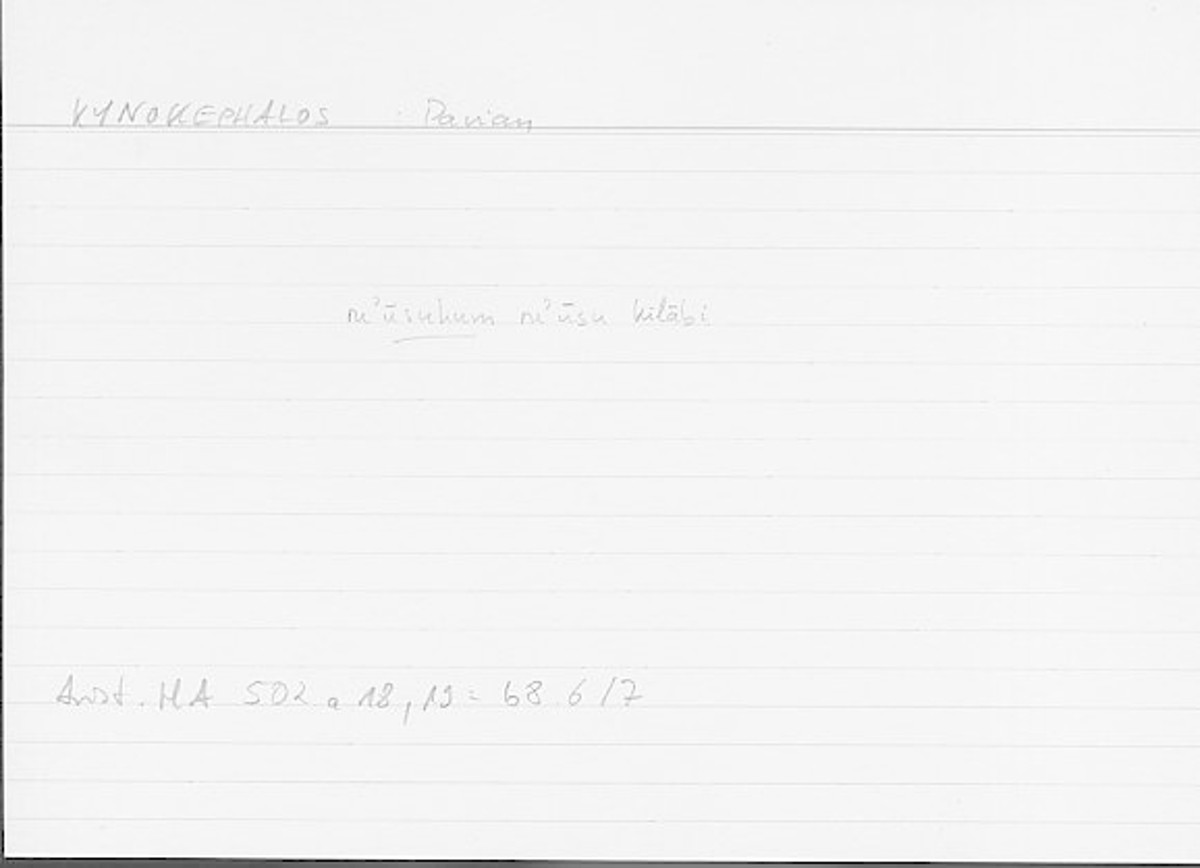 KYNOKEPHALOS : Pavian
ru'ūsuhum ru'ūsu kilābi
Arist. HA 502 a 18, 19 = 68 6/7